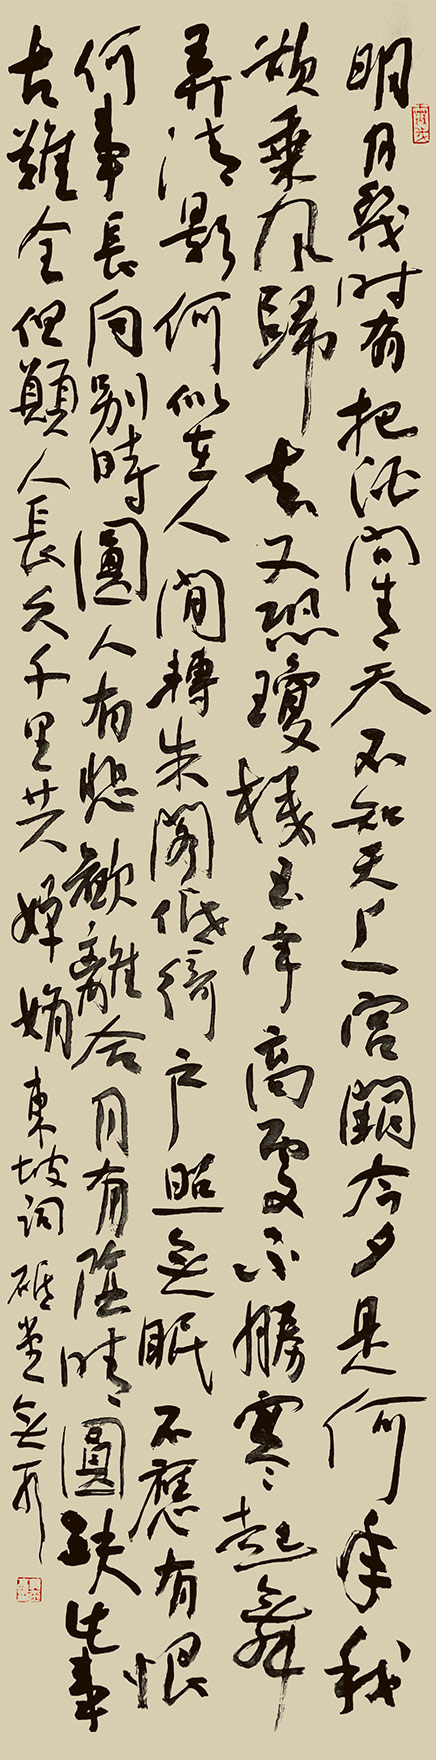 明月幾时有把酒问青天不知天上宫闕今夕是何年我
欲乘风歸去又恐瓊楼玉宇高處不勝寒起舞
弄清影何似在人間轉朱閣低绮户照無眠不應有恨
何事長向别時圓人有悲歡離合月有陰晴圓缺此事
古難全但願人長久千里共嬋娟東坡词